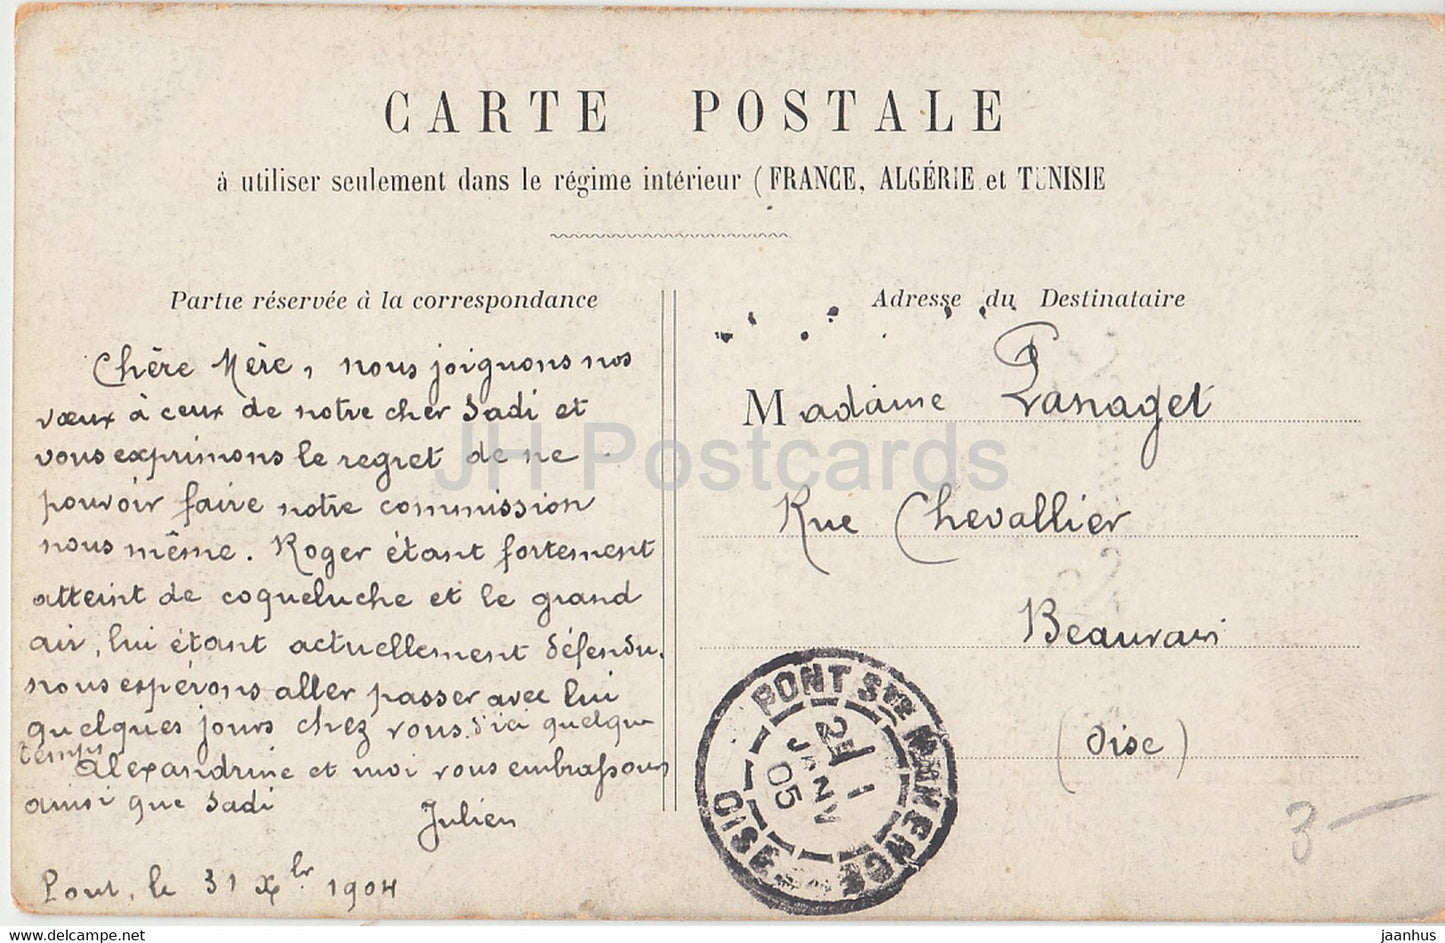 CARTE POSTALE
à utiliser seulement dans le régime intérieur (FRANCE, ALGÉRIE et TUNISIE
Partie réservée à la correspondance
Chère Mère, nous joignons nos
vœux à ceux de notre cher Sadi et
vous exprimons le regret de ne
pouvoir faire notre commission
nous même. Roger étant fortement
atteint de coqueluche et le grand
air, lui étant actuellement défendu,
nous espérons aller passer avec lui
quelques jours chez vous d'ici quelque
temps
Alexandrine et moi vous embrassons
ainsi que Sadi
Julien
Pont, le 31 Xbr 1904
Adresse du Destinataire
Madame Panaget
Rue Chevallier
Beauvais
(Oise)
PONT STE MAXENCE
2E 1
JANV
05
OISE
3-
JH Postcards
www.delcampe.net
jaanhus